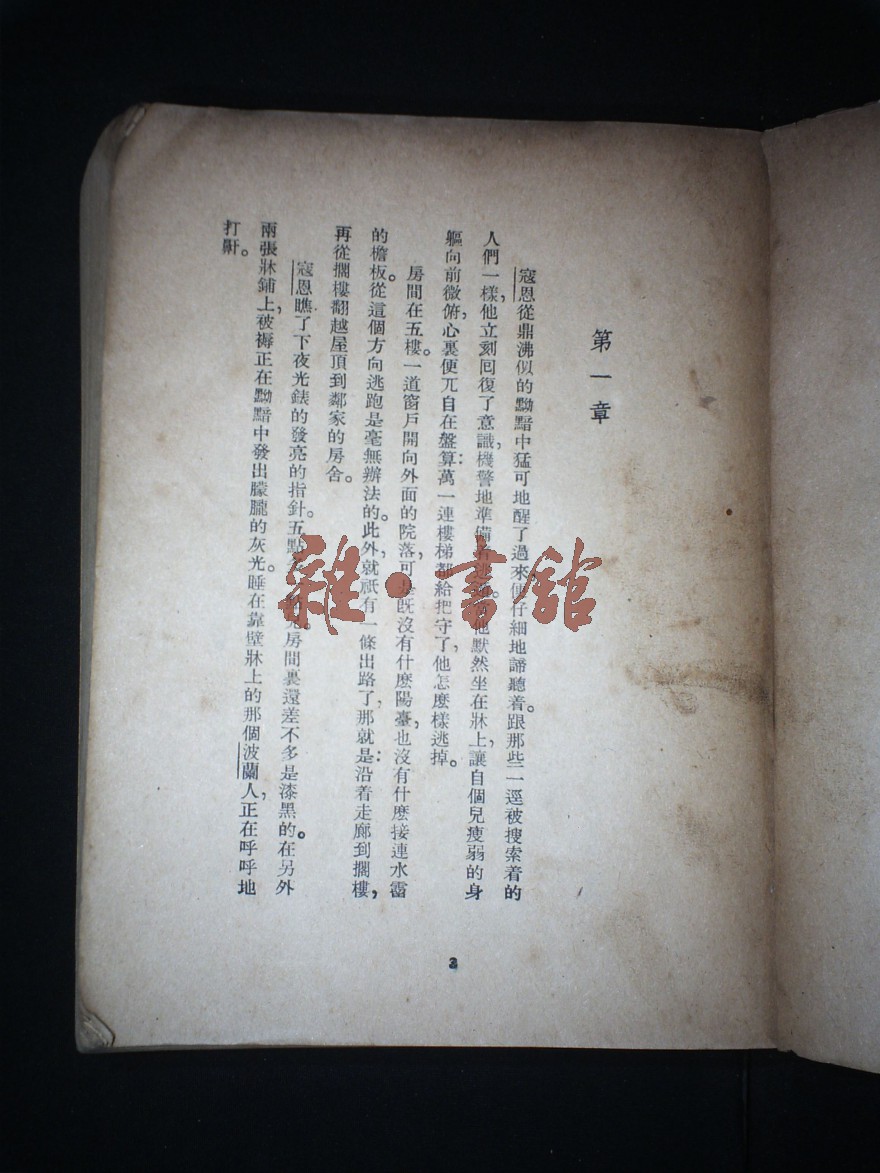 第一章
寇恩從鼎沸似的黝黯中猛可地醒了過來,便仔細地諦聽着。跟那些一逕被搜索着的
人們一樣,他立刻囘復了意識,機警地準備 他默然坐在牀上,讓自個兒瘦弱的身
軀向前微俯,心裏便兀自在盤算:萬一連樓梯都給把守了,他怎麽樣逃掉。
房間在五樓。一道窗戶開向外面的院落,可是旣沒有什麽陽臺,也沒有什麽接連水霤
的檐板。從這個方向逃跑是毫無辦法的。此外,就祇有一條出路了,那就是:沿着走廊到擱樓,
再從擱樓翻越屋頂到鄰家的房舍。
寇恩瞧了下夜光錶的發亮的指針。五點 房間裏還差不多是漆黑的。在另外
兩張牀鋪上,被褥正在黝黯中發出朦朧的灰光。睡在靠壁牀上的那個波蘭人,正在呼呼地
打鼾。
3
雜·書舘